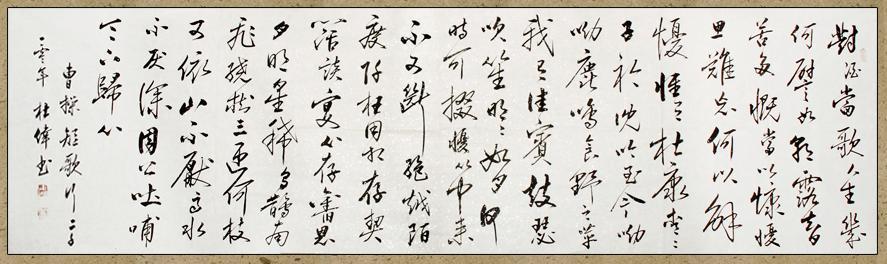 對酒當歌人生幾
何譬如朝露去日
苦多慨當以慷憂
思難忘何以解
憂惟有杜康青〻
子衿沈吟至今呦
呦鹿鳴食野之苹
我有佳賓鼓瑟
吹笙明〻如月何
時可掇憂從中來
不可斷絕越陌
度阡枉用相存契
闊談宴心存舊恩
月明星稀烏鵲南
飛繞樹三匝何枝
可依山不厭高水
不厭深周公吐哺
天下歸心
曹操短歌行
一零年杜偉書